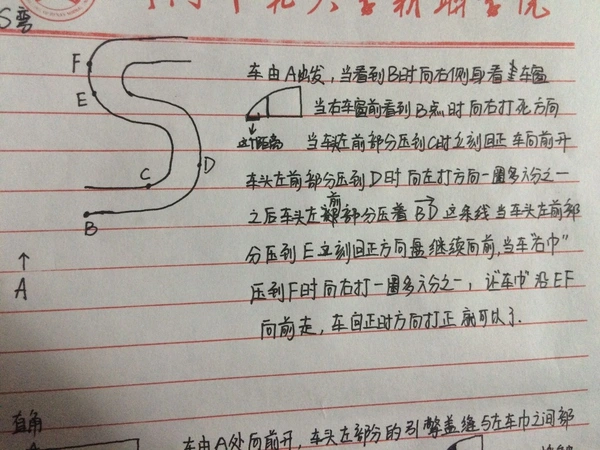 S弯
F
E
C
D
B
↑
A
车由A出发，当看到B时向右侧身看车窗
当右车窗前看到B点时向右打死方向
这个距离
当车头左前部分压到C时立刻回正车向前开
车头左前部分压到D时向左打方向一圈多六分之一
之后车头左前部分压着BD这条线当车头左前部
分压到E立刻回正方向盘继续向前,当车"右巾"
压到F时向右打一圈多六分之一，让"车巾"沿EF
向前走，车回正时方向打正就可以了.
直角
车由A处向前开，车头左部分的引擎盖缝与左车巾之间部